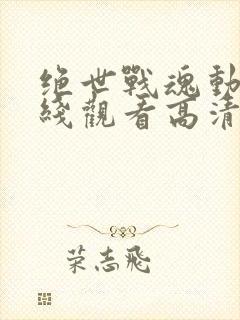 绝世戰魂動
綫觀看高清
荣志飛